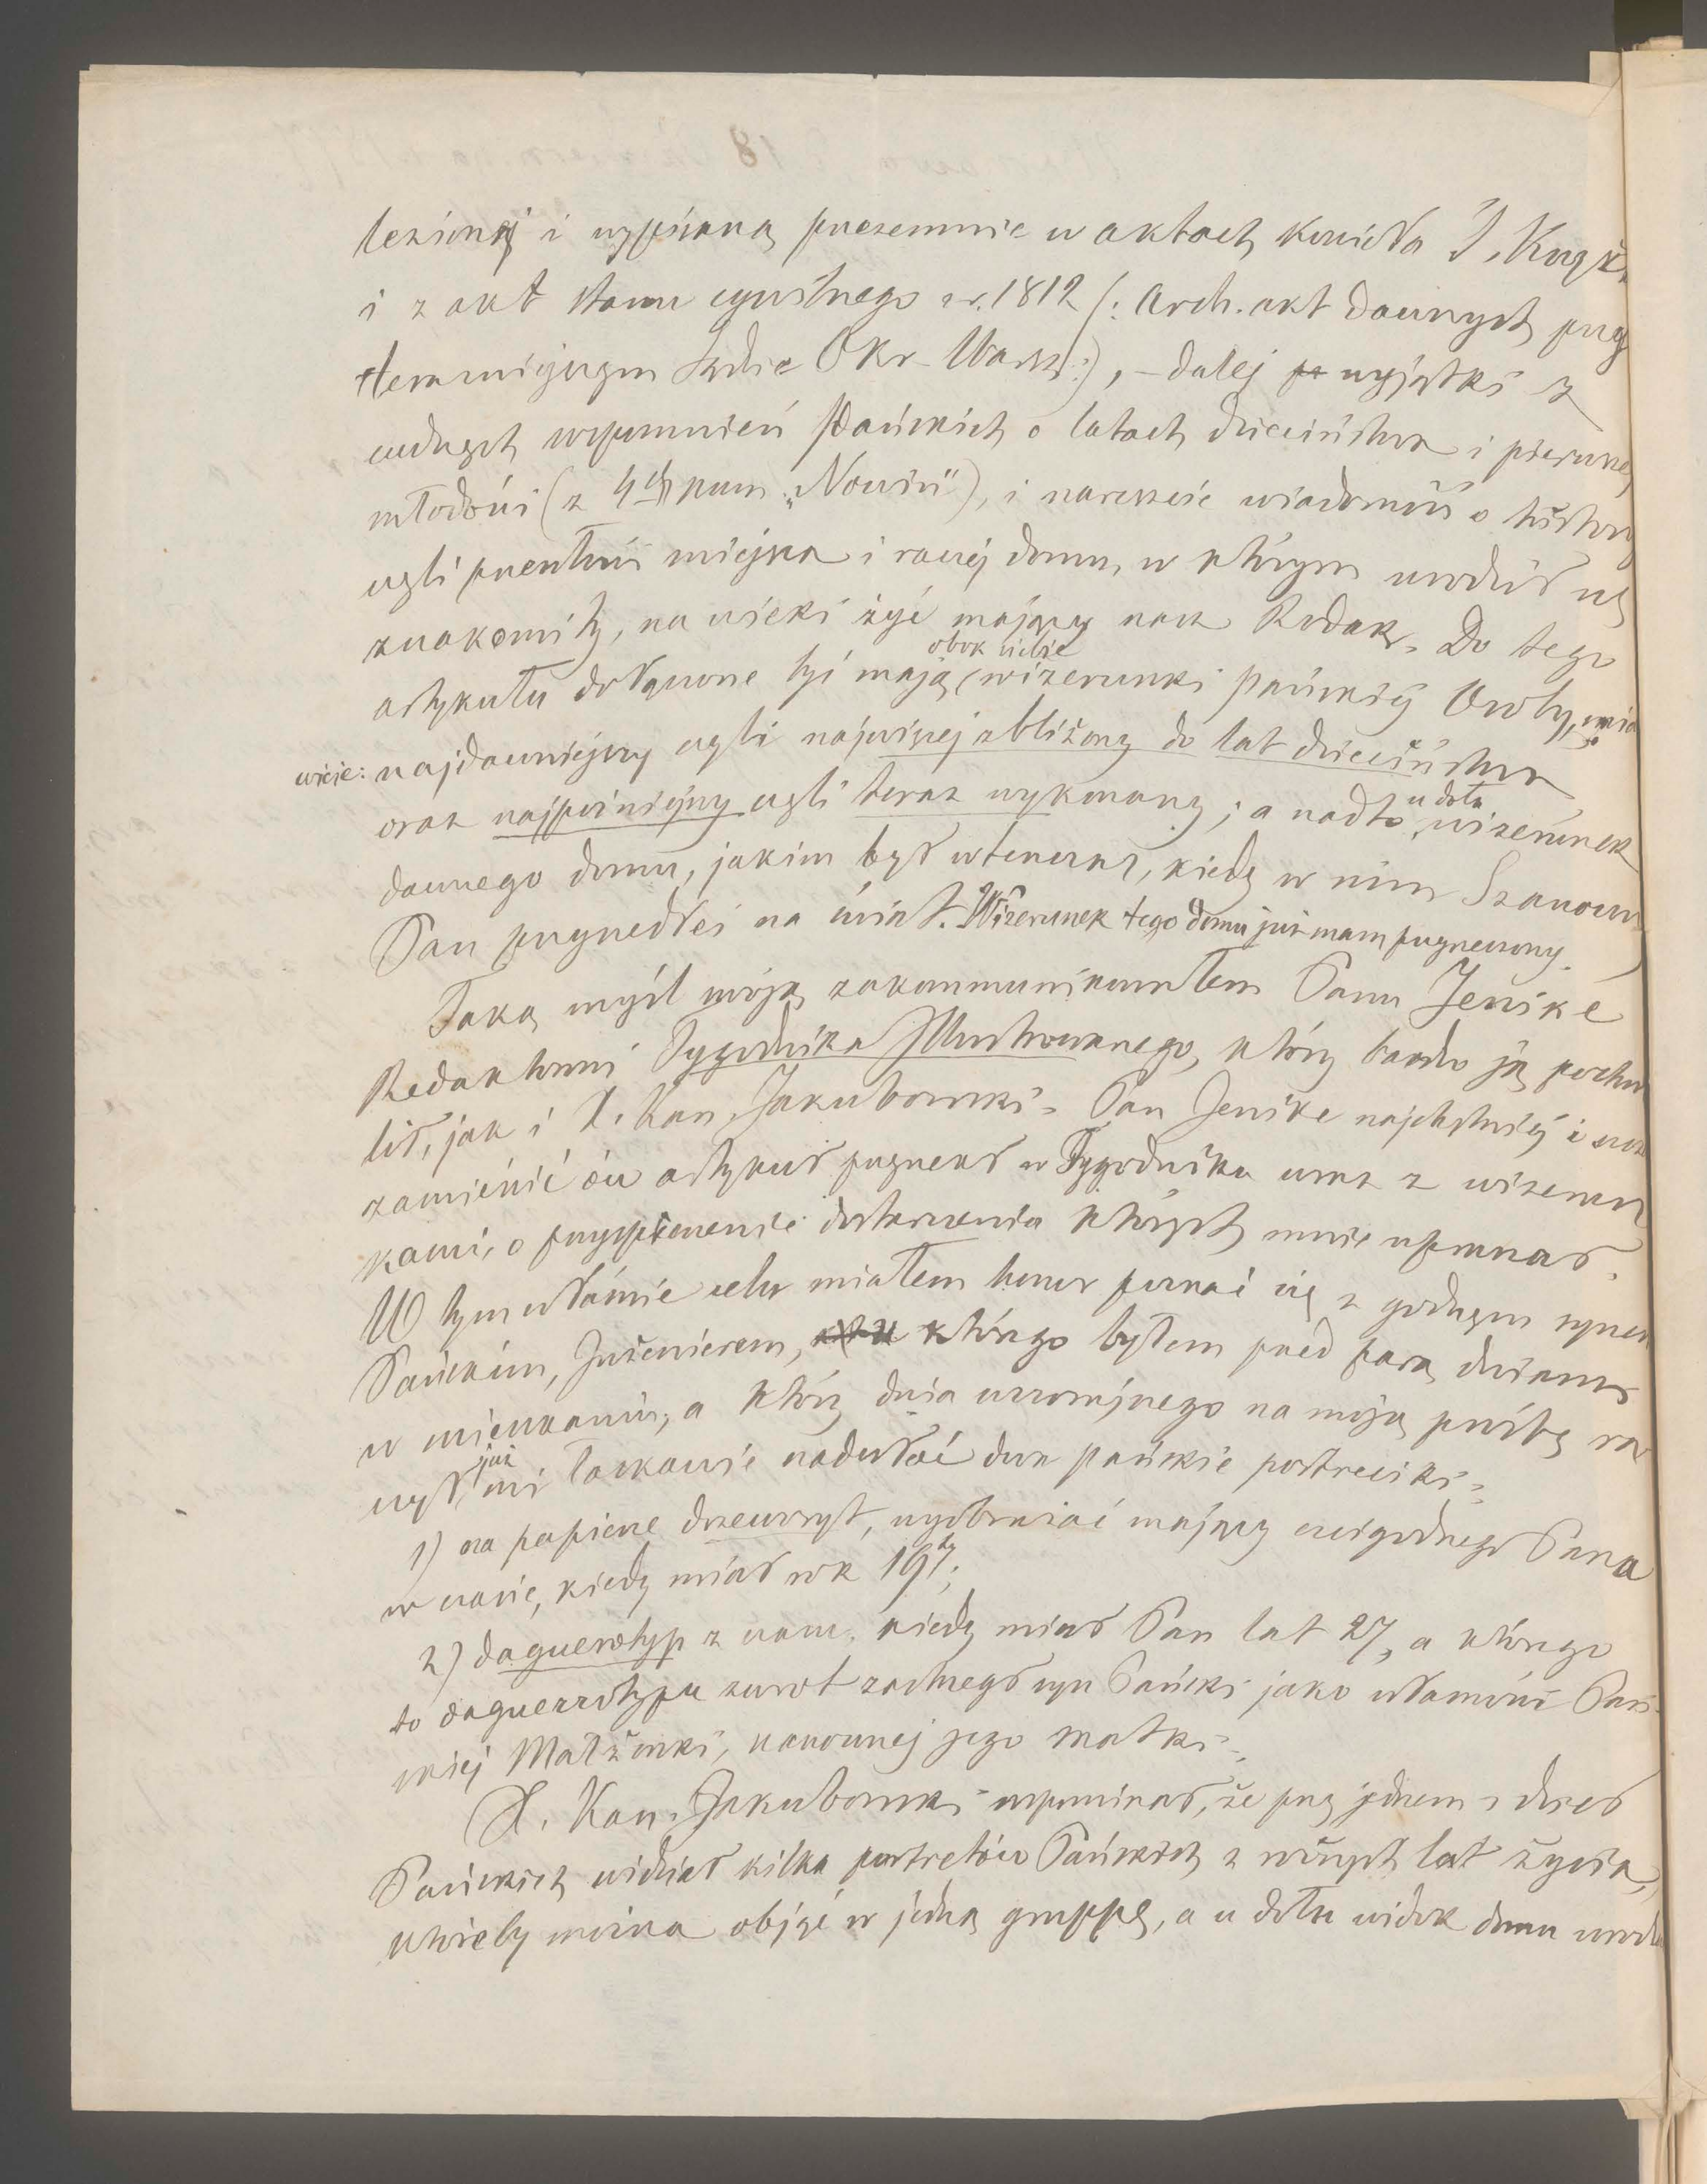 lezionej i wypisaną przezemnie w aktach kościoła Ś. Krzyż
i z akt stanu cywilnego z r. 1812 (: Arch. akt dawnych przy
tutejszym Sądzie Okr. Warsz:), – dalej wyjątki z
cudnych wspomnień Pańskich o latach dzieciństwa i pierwszej
młodości (z 4ch num. „Nowin"), i nareszcie wiadomość o history
czyli przeszłości miejsca i raczej domu, w którym urodził się
znakomity, na wieki żyć mający nasz Rodak. Do tego
artykułu dołączone być mają obok siebie wizerunki pańskiej Osoby, mia
wicie: najdawniejszy czyli najwięcej zbliżony do lat dzieciństwa
oraz najpóźniejszy czyli teraz wykonany; a nadto u dołu wizerunek
dawnego domu, jakim był wtenczas, kiedy w nim Szanowny
Pan przyszedłeś na świat. Wizerunek tego domu już mam przyrzeczony.
Taką myśl moją zakommunikowałem Panu Jenike
Redaktorowi Tygodnika Illustrowanego, który bardzo ją pochwa
lił, jak i X. Kan. Jakubowski. Pan Jenike najchętniej i
zamieścić ów artykuł przyrzekł w Tygodniku wraz z wizerun
kami, o przyspieszenie dostarczenia których mnie upraszał.
W tym właśnie celu miałem honor poznać się z godnym synem
Pańskim, Inżenierem, którego byłem przed parą dniami
w mieszkaniu, a który dnia wczorajszego na moją prośbę ra
czył już mi łaskawie nadesłać dwa pańskie portreciki:
1) na papierze drzeworyt, wyobrażać mający czcigodnego Pana
w czasie, kiedy miał rok 19ty;
2) daguerotyp z czasu, kiedy miał Pan lat 27, a którego
to daguerrotypu zwrot zastrzegł syn Pański jako własność Pań
skiej Małżonki, szanownej jego matki.
X. Kan. Jakubowski wspominał, że przy jednem z dzieł
Pańskich widział kilka portretów Pańskich z różnych lat życia,
któreby można objąć w jedną gruppę, a u dołu widok domu urodz